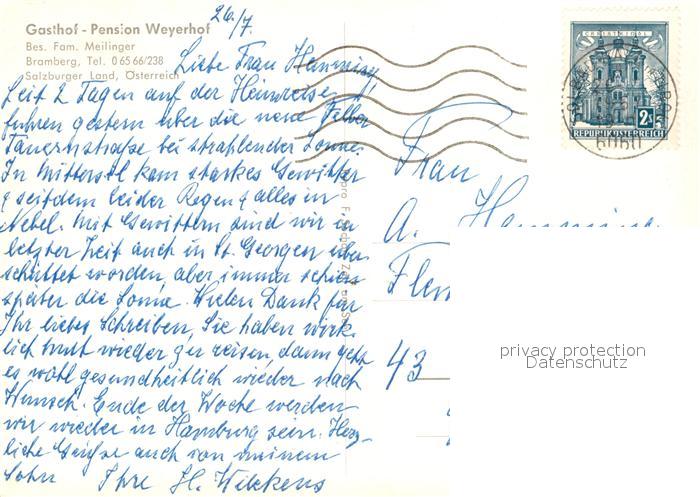 Gasthof - Pension Weyerhof
Bes. Fam. Meilinger
Bramberg, Tel. 0 65 66/238
Salzburger Land, Österreich
26./7.
Liebe Frau Henning,
Seit 2 Tagen auf der Heimreise
fuhren gestern über die neue Felber
Tauernstraße bei strahlender Sonne.
In Mittersil kam starkes Gewitter
& seitdem leider Regen & alles in
Nebel. Mit Gewittern sind wir in
letzter Zeit auch in St. Georgen über
schüttet worden, aber immer schien
später die Sonne. Vielen Dank für
Ihr liebes Schreiben, Sie haben wirk-
lich Mut wieder zu reisen, dann geht
es wohl gesundheitlich wieder nach
Wunsch. Ende der Woche werden
wir wieder in Hamburg sein. Herz-
liche Grüße auch von meinem
Sohn Ihre H. Wilckens
CHRISTKINDL
2 S
REPUBLIK ÖSTERREICH
Frau
A. Henning
43
privacy protection
Datenschutz